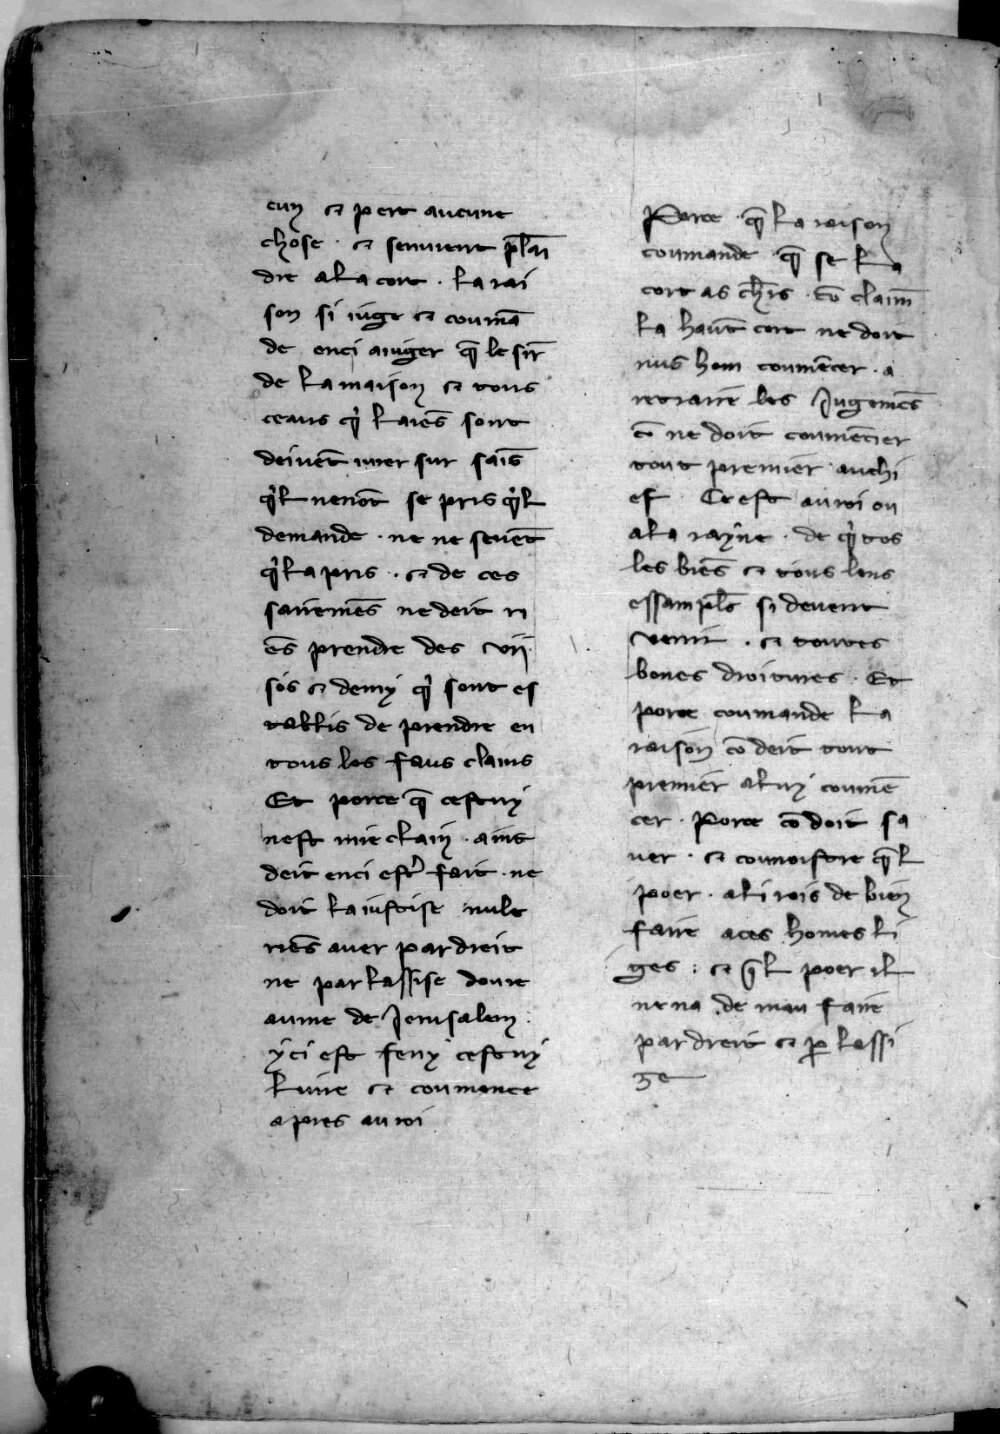 cun ⁊ pert aucune
chose · ⁊ semuent pͫlai
dre a la cort · La rai
son si iuge ⁊ coumā
de enci a iuger q̄ le sir̄
de la maison ⁊ tous
ceaus qͥ laiēs sont
deiuēt iurer sur sais̄
qͥl nenōt se pris qͥl
demande · ne ne seuēt
qͥ la pris · ⁊ de ces
sairemēs ne deit ri
ēs prendre des vii
sōs ⁊ demy qͥ sont es
tablis de prendre en
tous les faus clains
Et porce q̄ cestuy
nest mie claim · ains
deit enci estr̄ fait · ne
doit la iustise nule
riēs auer par dreit
ne par lassise dou re
aume de Jerusalem ·
ẏci est feny cestuy
liure ⁊ coumence
apres au roi
Porce q̄ la raison
coumande q̄ se la
cort as ch̄rs · cō claim̄
la haut̄ cort ne doit
nus hom coumēcer · a
retraire les Jugemēs
cō ne doit coumēcier
tout premier au chi
ef Ce est au roi ou
a la rayne · de qͥ tos
les biēs ⁊ tous leus
essamplēs si deuent
venir · ⁊ toutes
bones droitures · Et
porce coumande la
raison cō deit tout
premier a luy coumē
cer · Porce cō doit sa
uer · ⁊ counoistre q̄l
poer · a li rois de bien
faire a ces homes li
ges : ⁊ q̄l poer il
nena de mau faire
par dreit ⁊ ꝑ lassi
ze